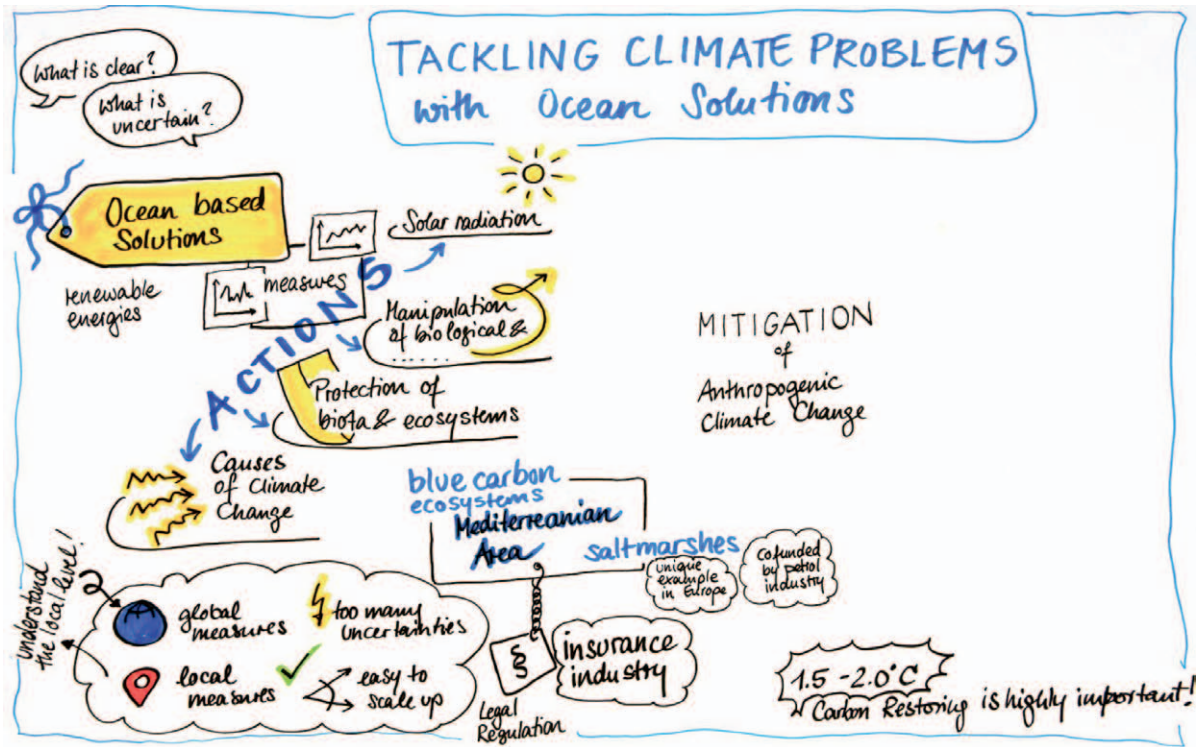 TACKLING CLIMATE PROBLEMS
with Ocean Solutions
What is clear?
What is
uncertain?
Ocean based
Solutions
renewable
energies
measures
ACTIONS
Solar radiation
Manipulation
of biological &
......
Protection of
biota & ecosystems
Causes
of Climate
Change
MITIGATION
of
Anthropogenic
Climate Change
blue carbon
ecosystems
Mediterreanian
Area
saltmarshes
unique
example
in Europe
cofunded
by petrol
industry
understand
the local level!
global
measures
too many
uncertainties
local
measures
easy to
scale up
§
Legal
Regulation
insurance
industry
1.5 - 2.0°C
Carbon Restoring is highly important!